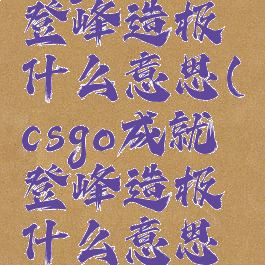 登峰造极
什么意思(
csgo成就
登峰造极
什么意思